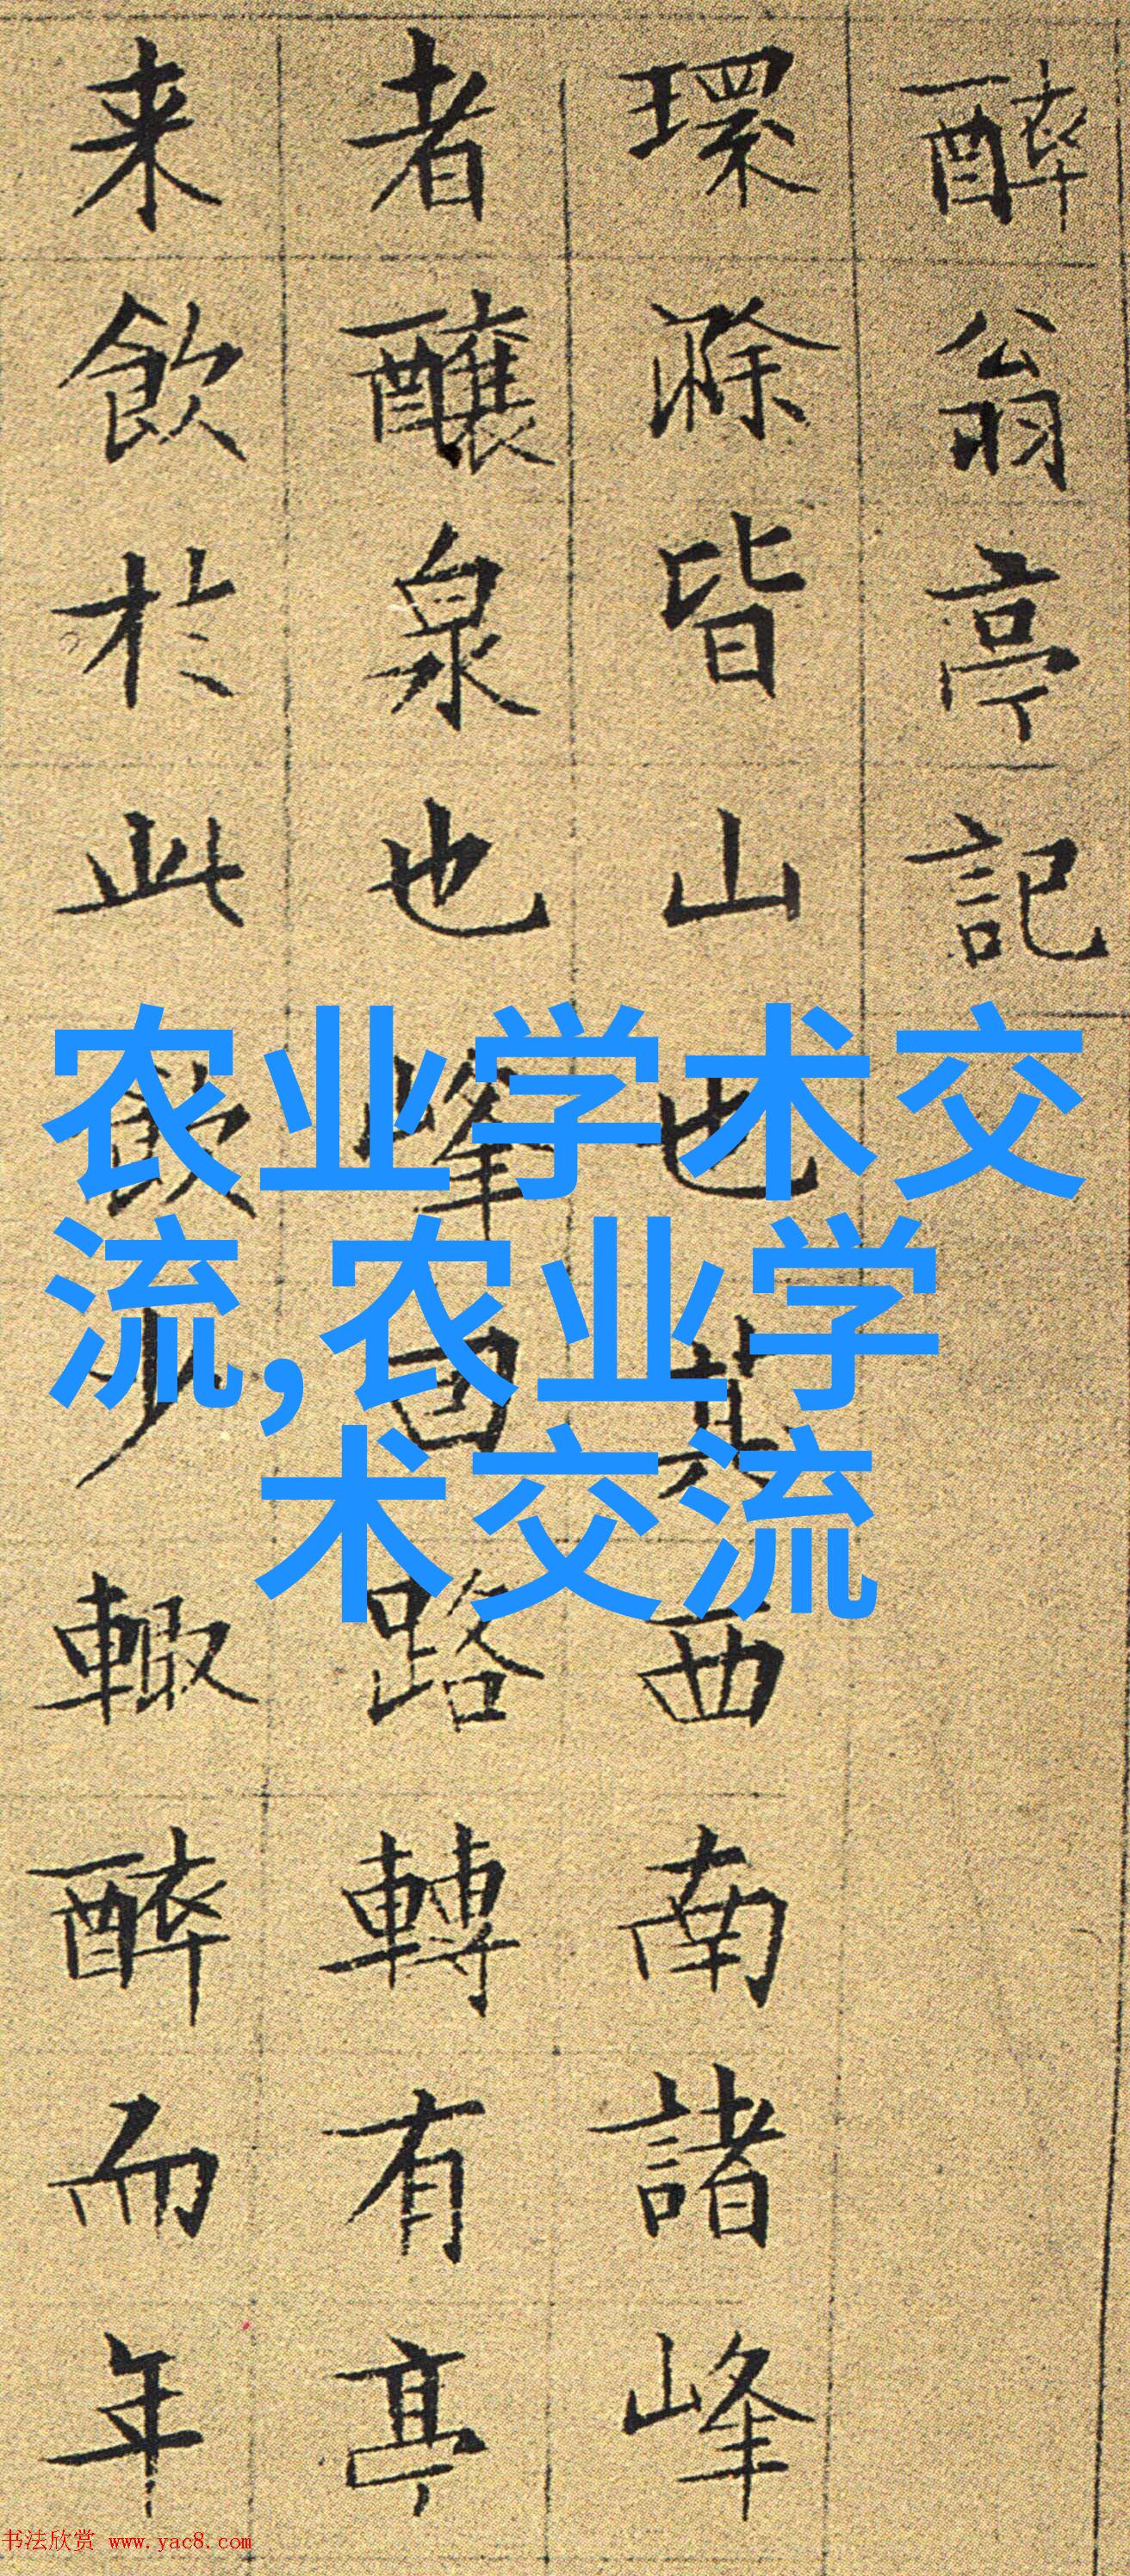 醉翁亭記
環滁皆山也其西南諸峰
者釀泉也峰回路轉有亭
来飲於此飲少輒醉而年
农业学术交
流,农业学
术交流
书法欣赏 www.yac8.com